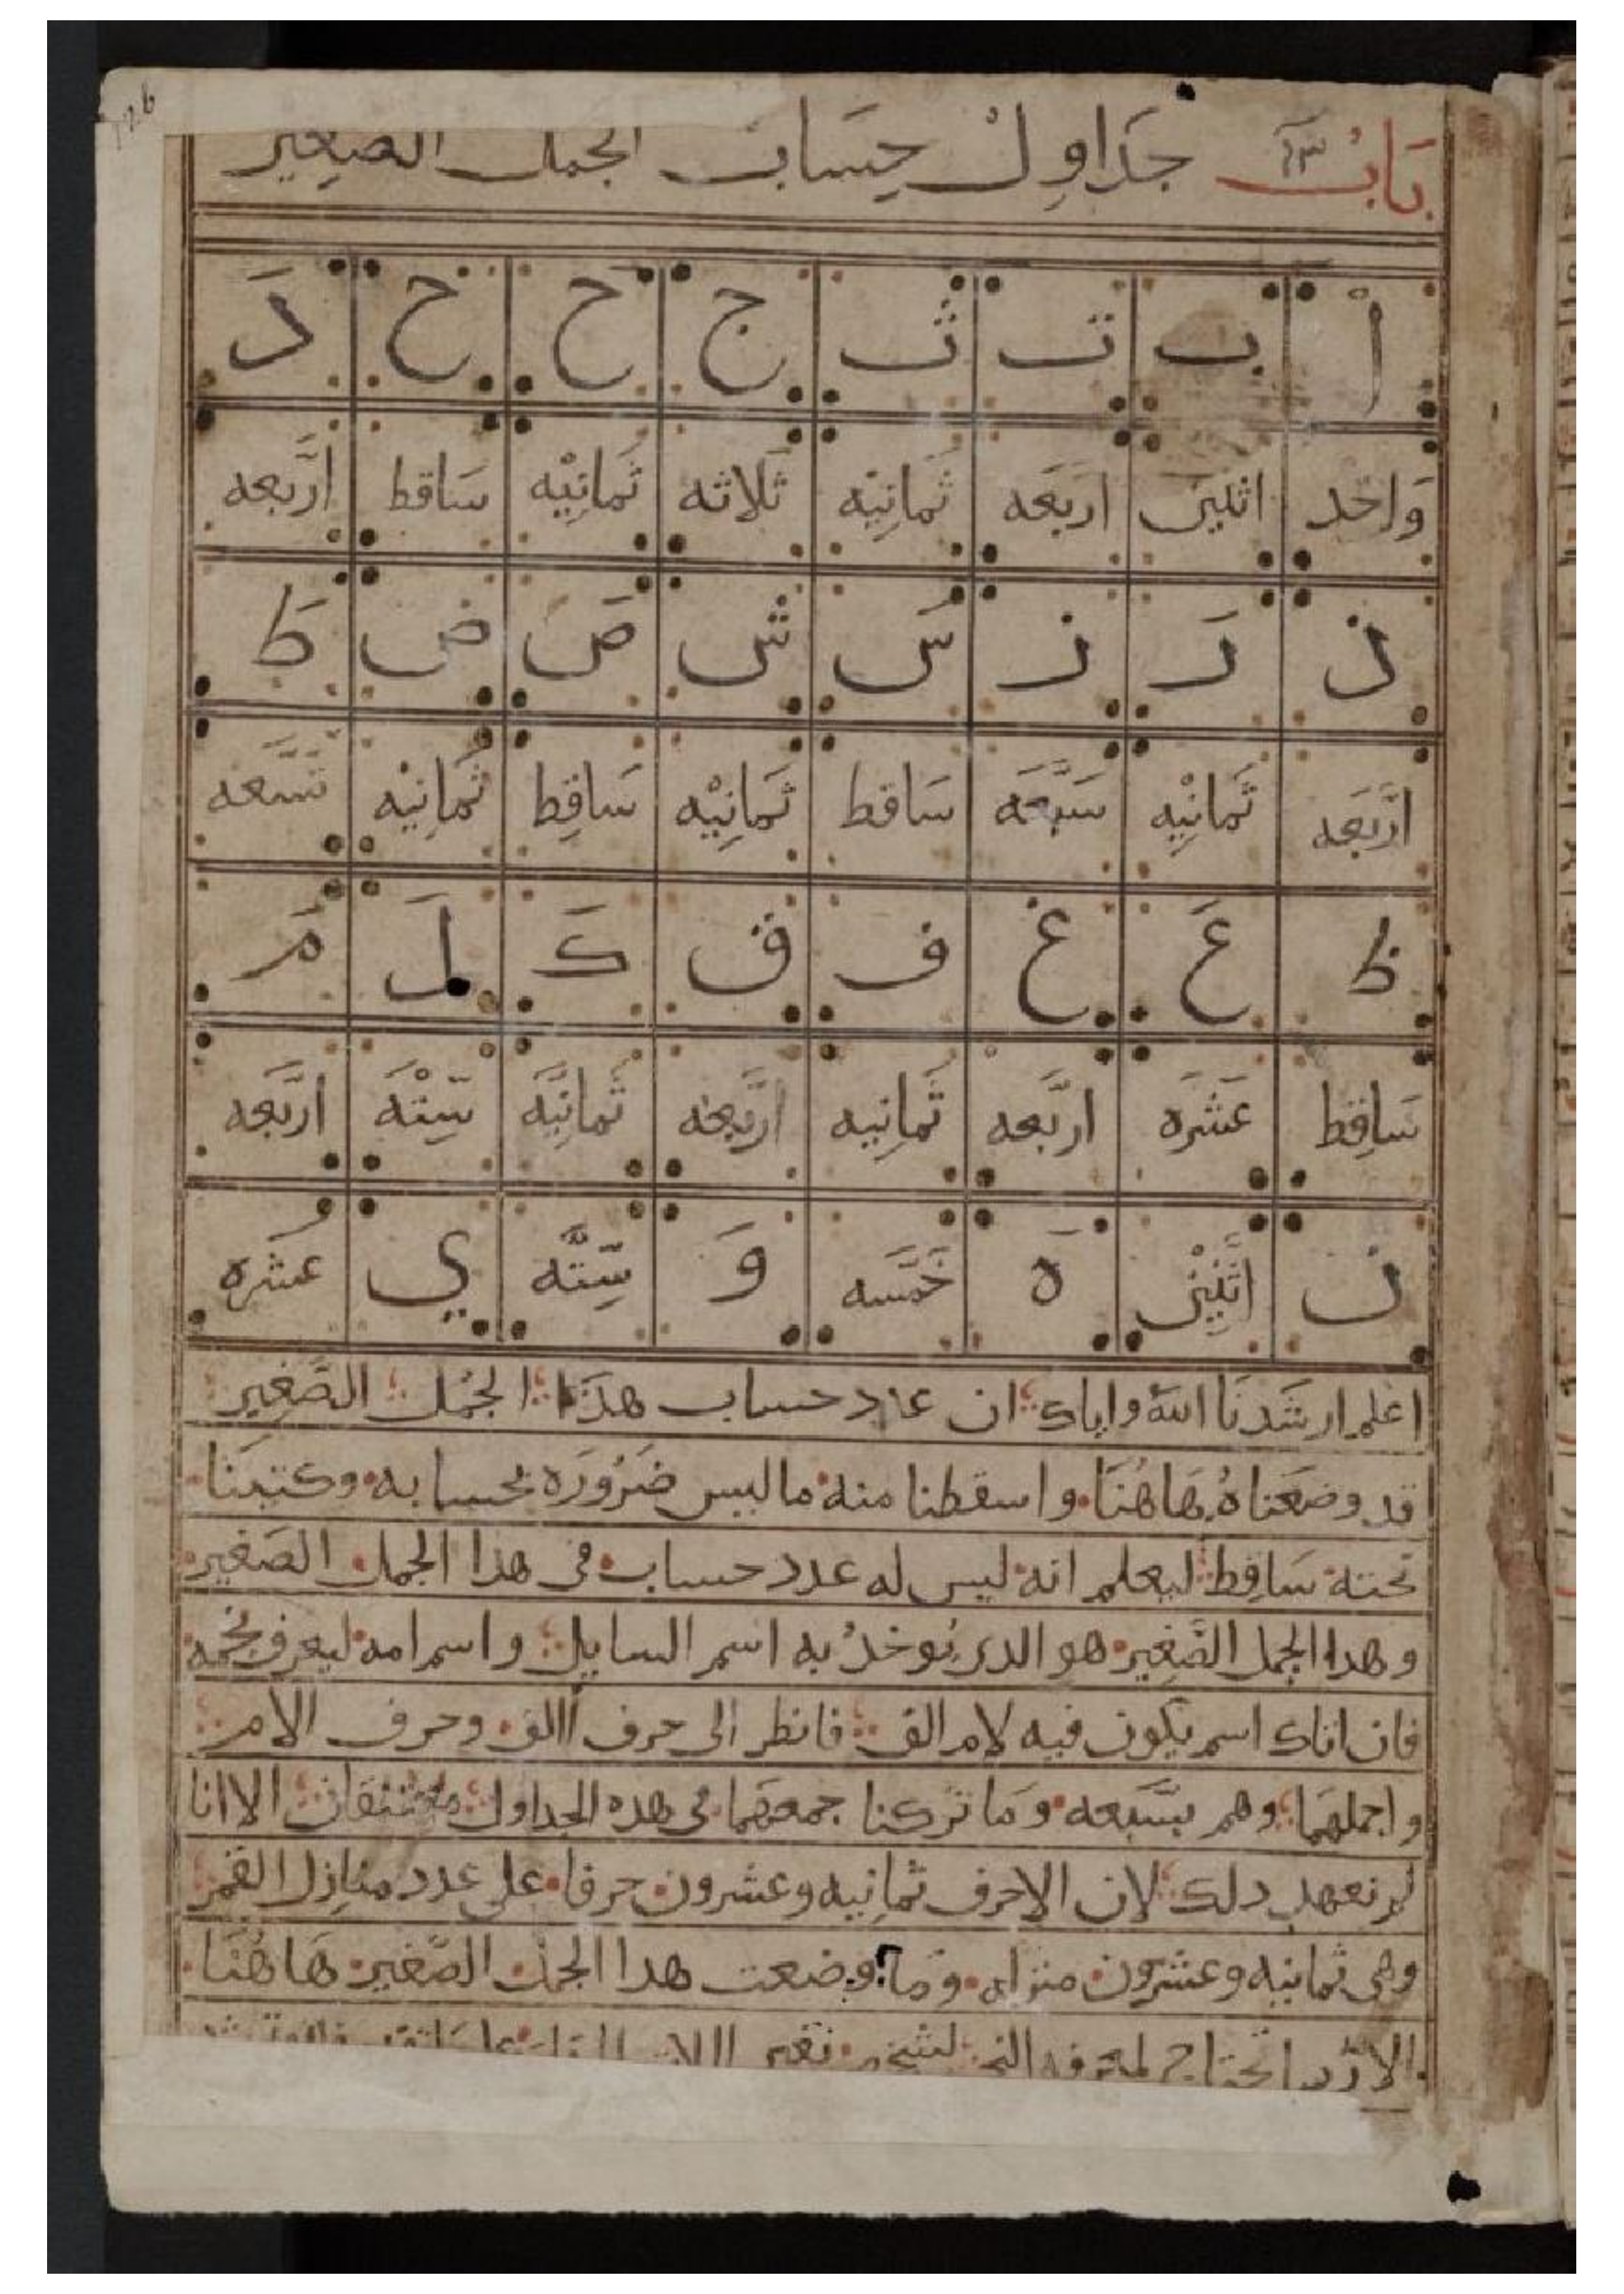 باب جداول حساب الجمل الصغير
أ ب ت ث ج ح خ د
واحد اثنين اربعه ثمانيه ثلاثه ثمانيه ساقط اربعه
ذ ر ز س ش ص ض ط
اربعه ثمانيه سبعه ساقط ثمانيه ساقط ثمانيه تسعه
ظ ع غ ف ق ك ل م
ساقط عشره اربعه ثمانيه اربعه ثمانيه سته اربعه
ن اثنين ه خمسه و سته ي عشره
اعلم ارشدنا الله واياك ان عدد حساب هذا الجمل الصغير
قد وضعناه هاهنا واسقطنا منه ما ليس ضروره بحسابه وكتبنا
تحته ساقط ليعلم انه ليس له عدد حساب في هدا الجمل الصغير
وهدا الجمل الصغير هو الدي يوخد به اسم السايل واسم امه ليعرف نجمه
فان اتاك اسم يكون فيه لام الف فانظر الى حرف االف وحرف الام
واجملهما وهم بسبعه وما تركنا جمعهما في هده الجداول الا انا
لم نعهد دلك لان الاحرف ثمانيه وعشرون حرفا على عدد منازل القمر
وهي ثمانيه وعشرون منزله وما وضعت هدا الجمل الصغير هاهنا